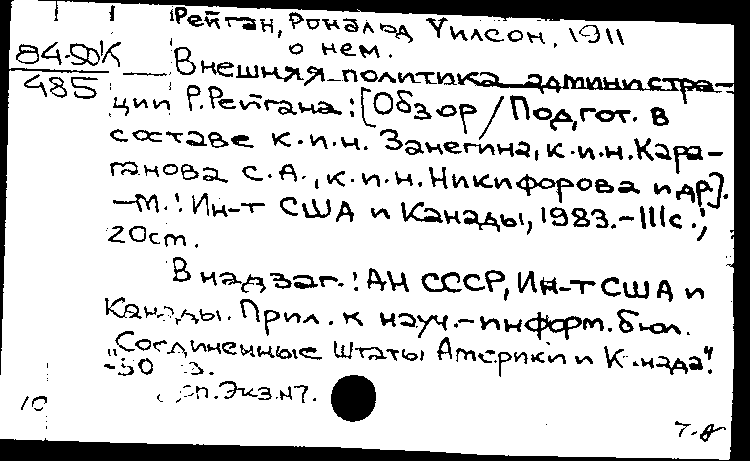 Рейган, Рональд Уилсон, 1911
о нем.
84-50К
485
Внешняя политика администра-
ции Р.Рейгана: [Обзор / Подгот. в
составе к.и.н. Занегина, к.и.н. Кара-
ганова С.А., к.и.н. Никифорова и др].
-М.: Ин-т США и Канады, 1983.-111с.;
20см.
В надзаг.: АН СССР, Ин-т США и
Канады. Прил. к науч.-информ. бюл.
"Соединенные Штаты Америки и К нада".
-50 э.
сп. Экз.N7.
10
7-8